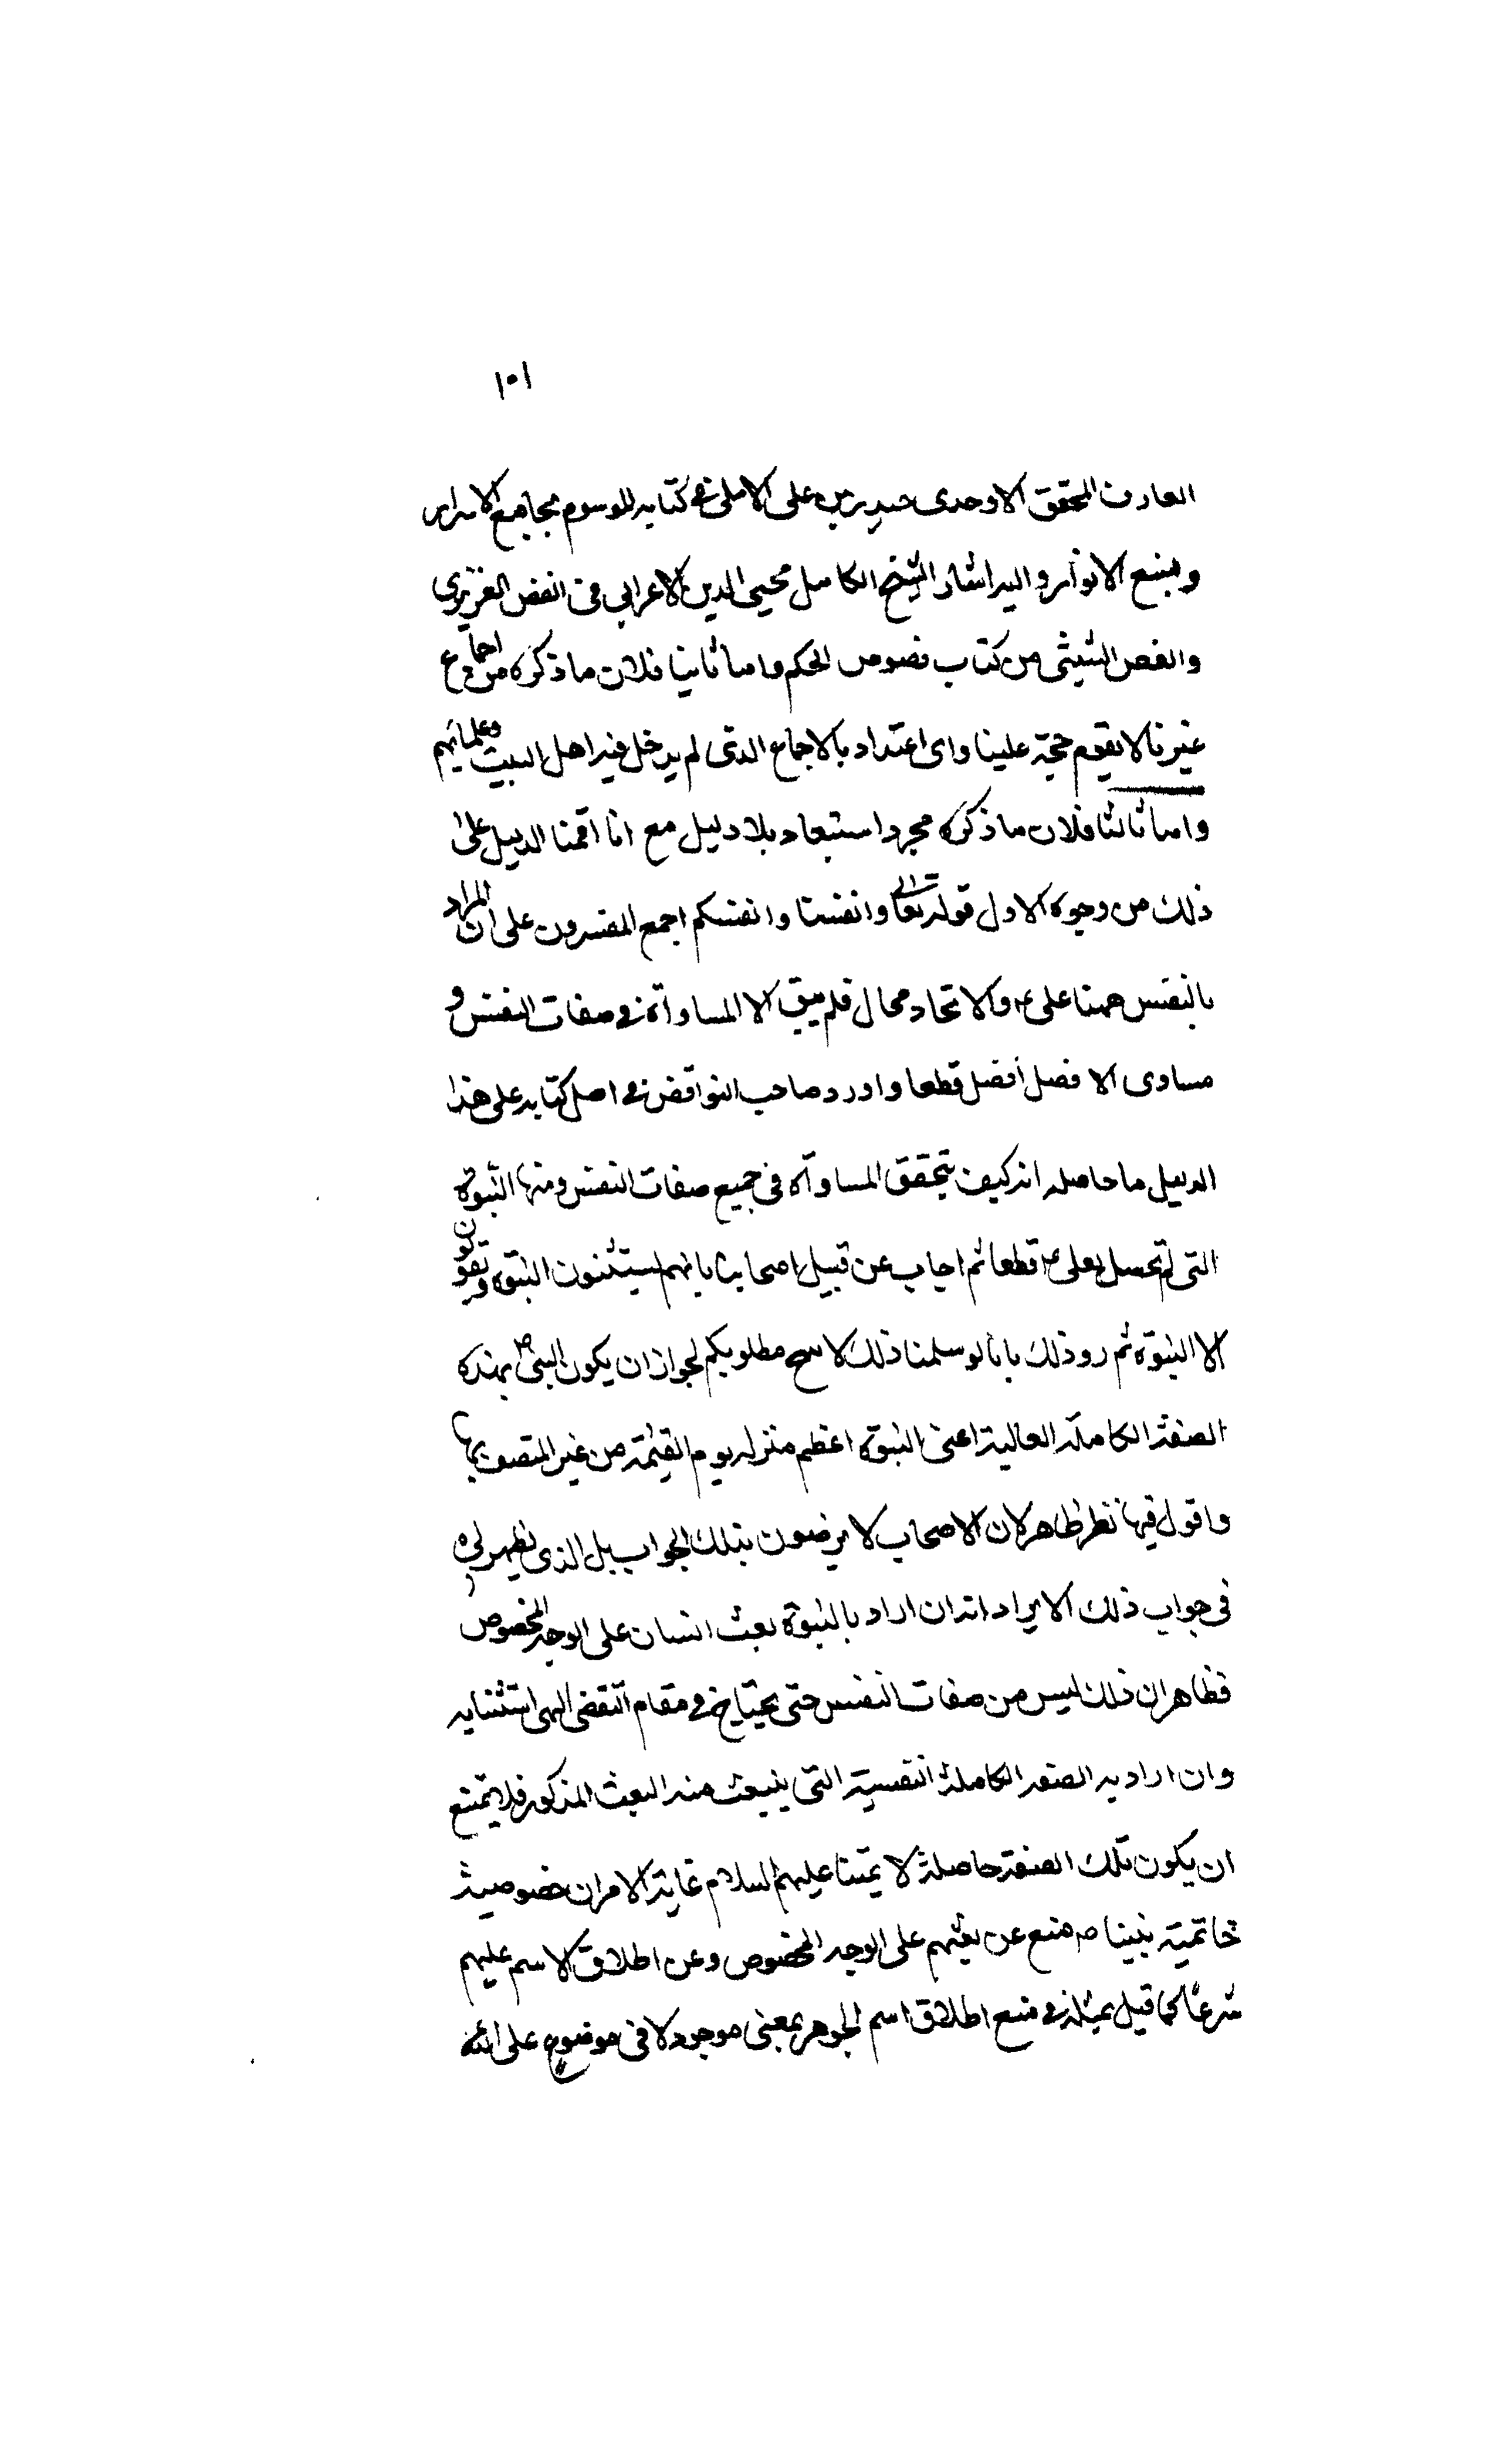 ١٠١
العارف المحقق الاوحدى حيدر بن على الاملى فى كتابه الموسوم بجامع الاسرار
ومنبع الانوار واليه اشار الشيخ الكامل محيى الدين الاعرابي فى الفص العزيرى
والفص الشيثى من كتاب فصوص الحكم واما ثانيا فلان ما ذكره من اجماع
غيرنا لا يقوم حجة علينا واى اعتداد بالاجماع الذى لم يدخل فيه اهل البيت وعلمائهم
واما ثالثا فلان ما ذكره مجرد استبعاد بلا دليل مع انا اقمنا الدليل على
ذلك من وجوه الاول قوله تعالى وانفسنا وانفسكم اجمع المفسرون على ان المراد
بالنفس ههنا على ع والاتحاد محال فلم يبق الا المساواة فى صفات النفس و
مساوى الافضل أفضل قطعا واورد صاحب النواقض فى اصل كتابه على هذا
الدليل ما حاصله انه كيف يتحقق المساواة فى جميع صفات النفس ومنها النبوة
التى لم تحصل لعلى ع قطعا ثم اجاب عن قبيل اصحابنا بانهم يستثنون النبوة ويقولون
الا النبوة ثم رد ذلك بانا لو سلمنا ذلك لا مطلوبكم لجواز ان يكون النبى ص بهذه
الصفة الكاملة العالية اعنى النبوة اعظم منزله يوم القيمة من غير المتصف بها
واقول فيها نظر ظاهر لان الاصحاب لا يرضون بتلك الجواب بل الذى يظهر لى
فى جواب ذلك الايراد انه ان اراد بالنبوة بعث انسان على الوجه المخصوص
فظاهر ان ذلك ليس من صفات النفس حتى يحتاج فى مقام النقض الى استثنايه
وان اراد به الصفة الكاملة النفسية التى ينبعث منه البعث المذكور فلا يمتنع
ان يكون تلك الصفة حاصلة لائمتنا عليهم السلام غاية الامر ان خصوصية
خاتمية نبينا ص منع عن بعثهم على الوجه المخصوص وعن اطلاق الاسم عليهم
شرعا كما قيل بمثله فى منع اطلاق اسم الجوهر بمعنى موجود لا فى موضوع على الله